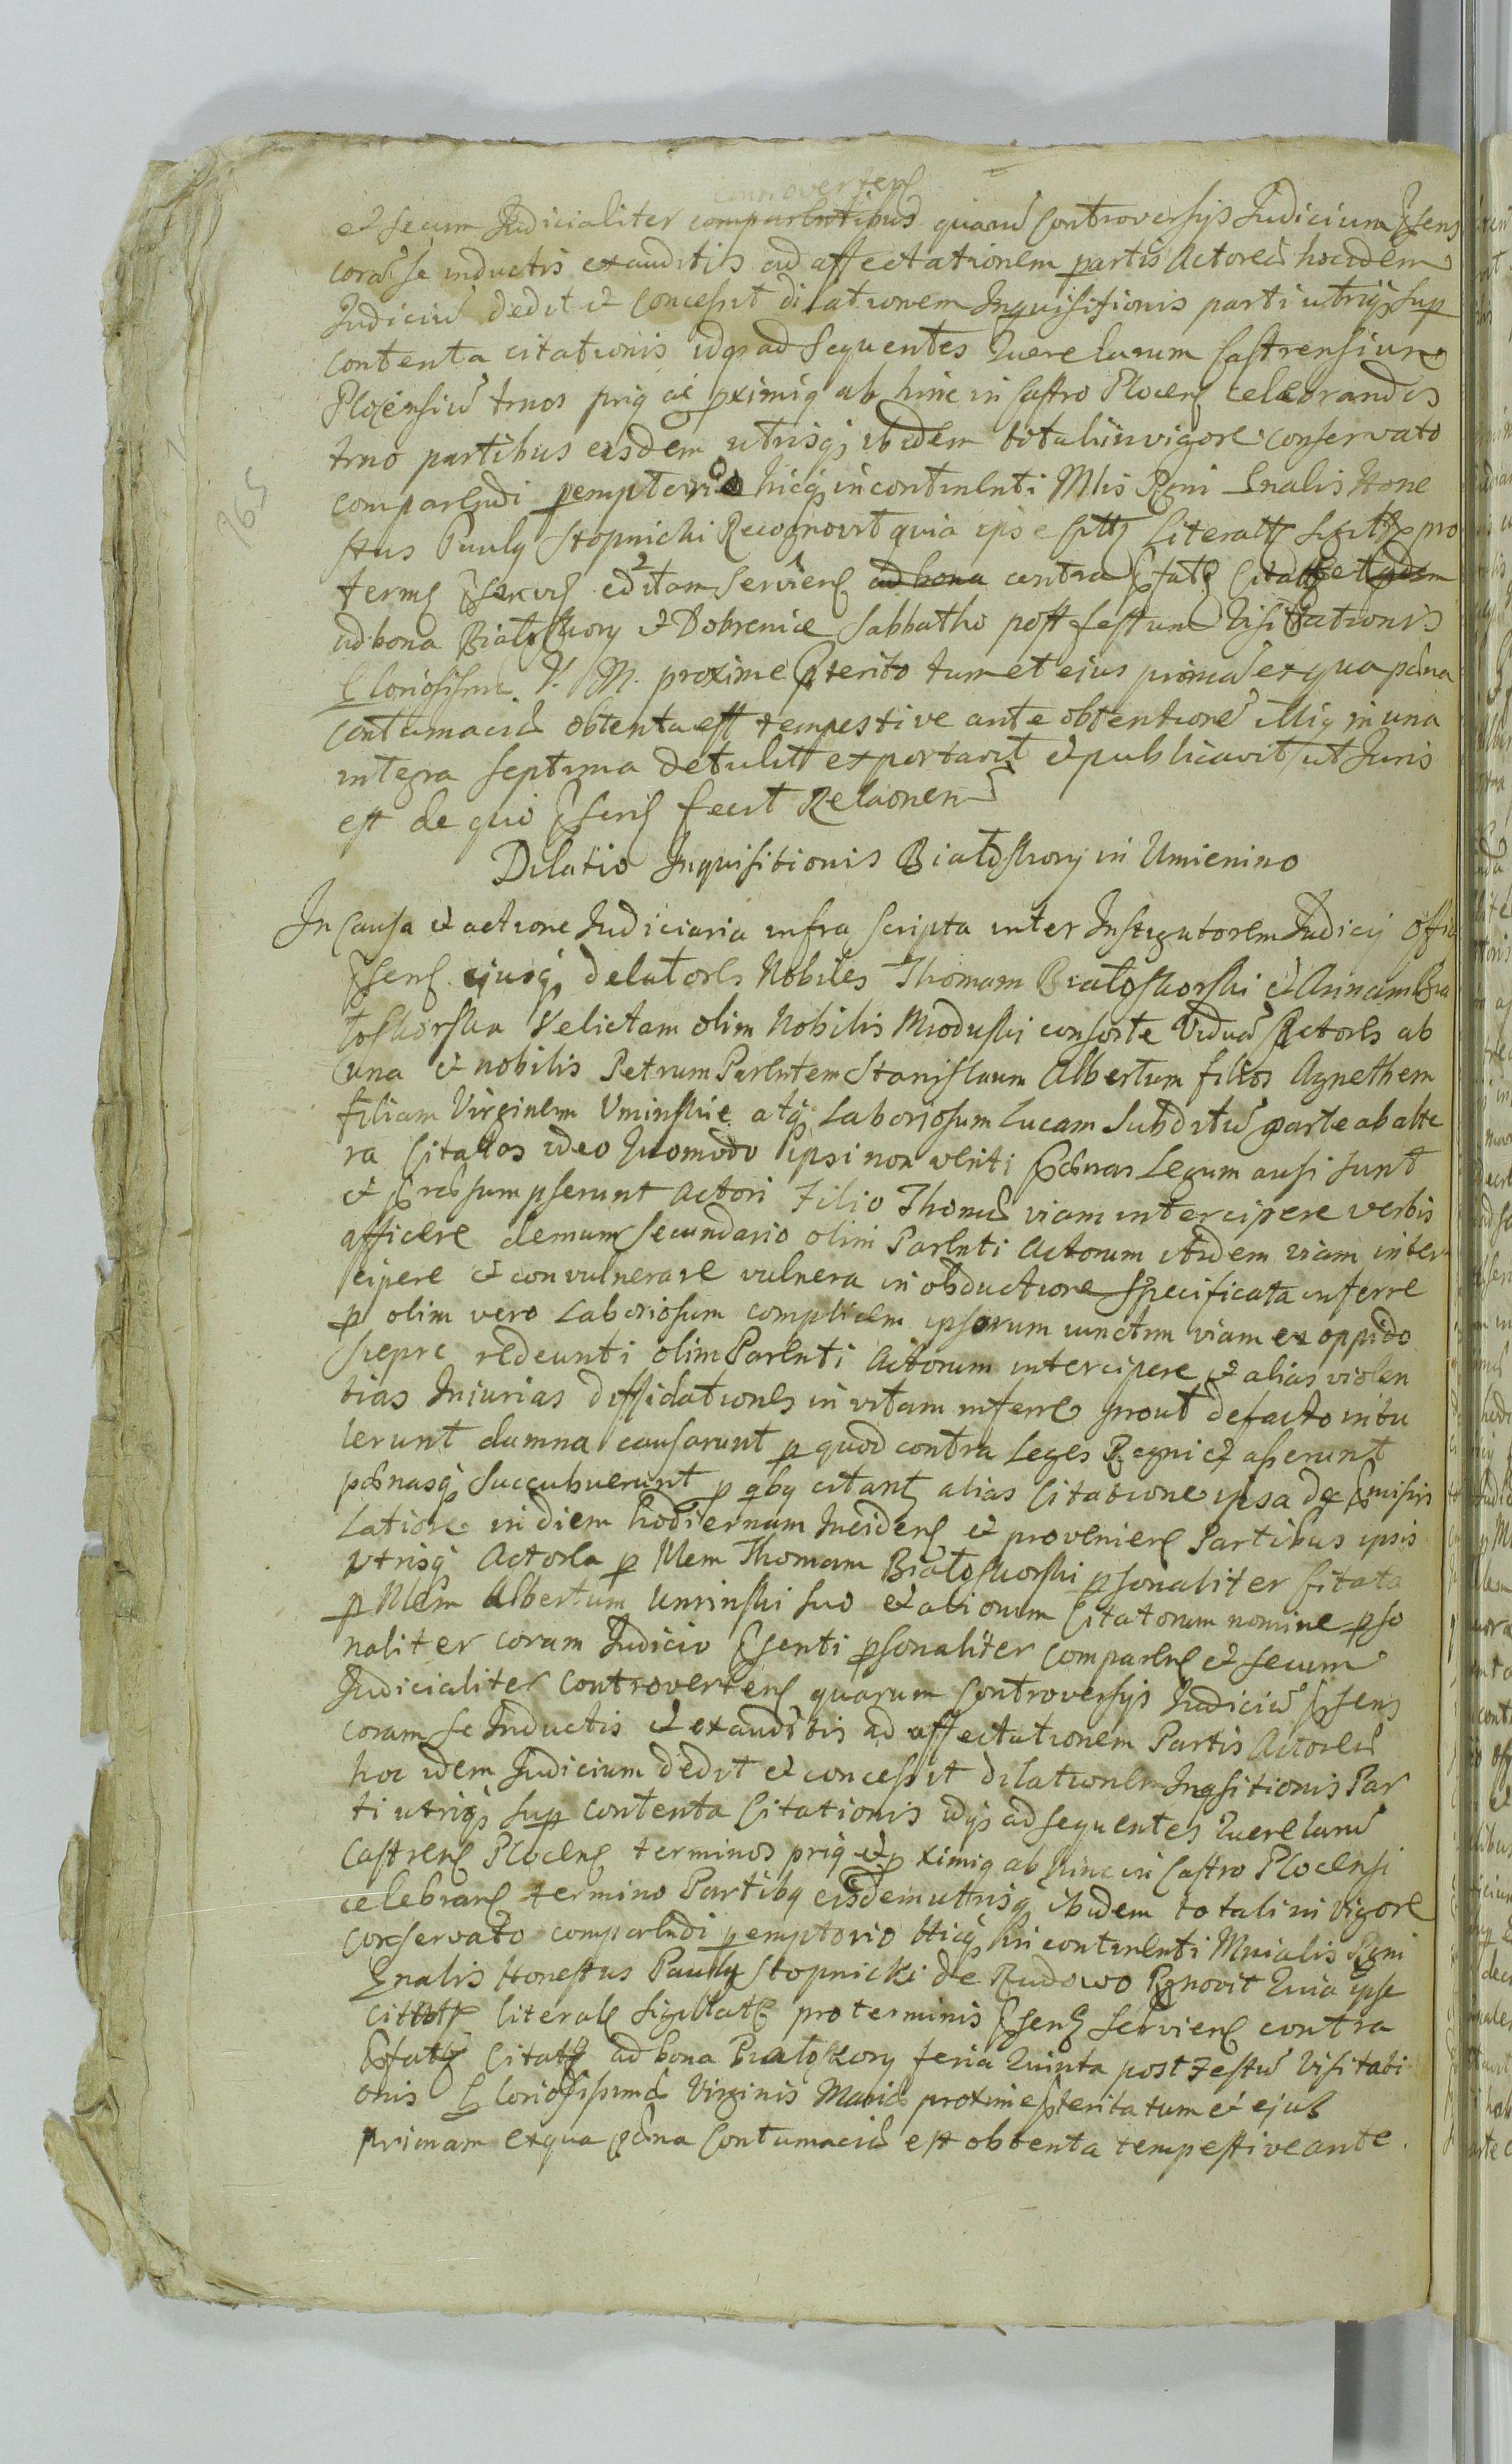 controvertens
et secum Judicialiter comparentibus quarū Controversijs Judicium Pñsens
corā se inductis exauditis ad affectationem partis Actoreæ hocidem
Judiciū dedit et Concessit dilationem Inquisitionis parti utriq; sup
contenta citationis idq; ad sequentes Querelarum Castrensium
Plocensiū trnos priq ac pximiq ab hinc in Castro Plocens celebrandos
trno partibus eisdem utrisq; ibidem totali in vigore conservato
comparendi pemptorio hicq; incontinenti Mlis Rgni Gnalis Hone
stus Paulq Stopnicki Recognovit quia ipse citt literatt sigitt pro
termis Pñsentis editam serviens ad bona contra Pfat Citat et
ad bona Białoskory et Dobrenice Sabbatho post festum Visitationis
Gloriosissimæ V. M. proxime Pterito tum et eius primā ex qua pœna
Contumaciæ obtenta est tempestive ante obtentionē illiq in una
integra septima detulit exportavit et publicavit ut Juris
est de quo Pñsens fecit Relaonem
Dilatio Inquisitionis Białoskory in Umienino
In Causa et actione Judiciaria infra scripta inter Instigatorem Judicij Offic
Pñsens ejusq; delatores Nobiles Thomam Białoskorski et Annam Bia
łoskorska Relictam olim Nobilis Mioduski consorte Viduā Actores ab
una et nobilis Petrum Parentem Stanislaum Albertum filios Agnethem
filiam Virginem Uminskie atq; Laboriosum Lucam Subditū parte ab alte
ra Citatos ideo Quomodo ipsi non veriti pœnas Legum ausi sunt
et Præsumpserunt Actori Filio Thomæ viam intercipere verbis
afficere demum secundario olim Parenti Actorum itidem viam inter
cipere et convulnerare vulnera in obductione specificata inferre
p olim vero Laboriosum complicem ipsorum iunctim viam ex oppido
Sieprc redeunti olim Parenti Actorum intercipere et alias violen
tias Iniurias diffidationes in vitam inferre prout defacto intu
lerunt damna causarunt p quod contra Leges Regni et aserunt
pœnasq; succubuerunt p qbq citant alias Citatione ipsa de Pmissis
Latiore in diem hodiernum Incidens et proveniens Partibus ipsis
utrisq; Actorea p Nlem Thomam Białoskorski psonaliter Citata
p Nlem Albertum Uminski suo et aliorum Citatorum nomine pso
naliter coram Judicio Pñsenti psonaliter Comparens et secum
Judicialiter Controvertens quarum Controversijs Judiciū Pñsens
coram se Inductis et exauditis ad affectationem Partis Actoreæ
hoc idem Judicium dedit et concessit dilationem Inqsitionis Par
ti utriq; sup contenta Citationis idq; ad sequentes Querelarū
Castrens Plocens terminos priq et p ximiq ab hinc in Castro Plocensi
celebrans termino Partibq eisdem utrisq; ibidem totali in vigore
conservato comparendi pemptorio Hicq; in continenti Mnialis Rgni
Gnalis Honestus Paulq Stopnicki de Rudowo Rgnovit Quia ipse
citatt literat sigillat pro terminis Pñsens serviens contra
Pfat Citat ad bona Białoskory feria Quinta post Festū Visitati
onis Gloriosissimæ Virginis Mariæ proxime Pterita tum et ejus
primam ex qua pœna Contumaciæ est obtenta tempestive ante.
165